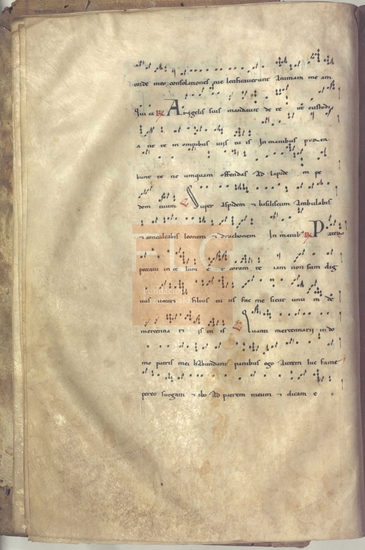 corde meo consolationes tue letificauerunt Animam me am
Qui ha R Angelis suis mandauit de te ut custodi
a nt te in omnibus uiis tu is In manibus porta
bunt te ne umquam offendas Ad lapide m pe
dem tuum Super Aspidem & basiliscum Ambulabis
& conculcabis leonem & draconem In manib R Pater
peccaui in ce lum & coram te iam non sum dig
nus uocari filius tu us fac me sicut unu m de
mercenna ri is tu is Quanti mercennarii in do
mo patris mei habundant panibus ego Autem hic fame
pereo surgam & ibo Ad patrem meum & dicam e